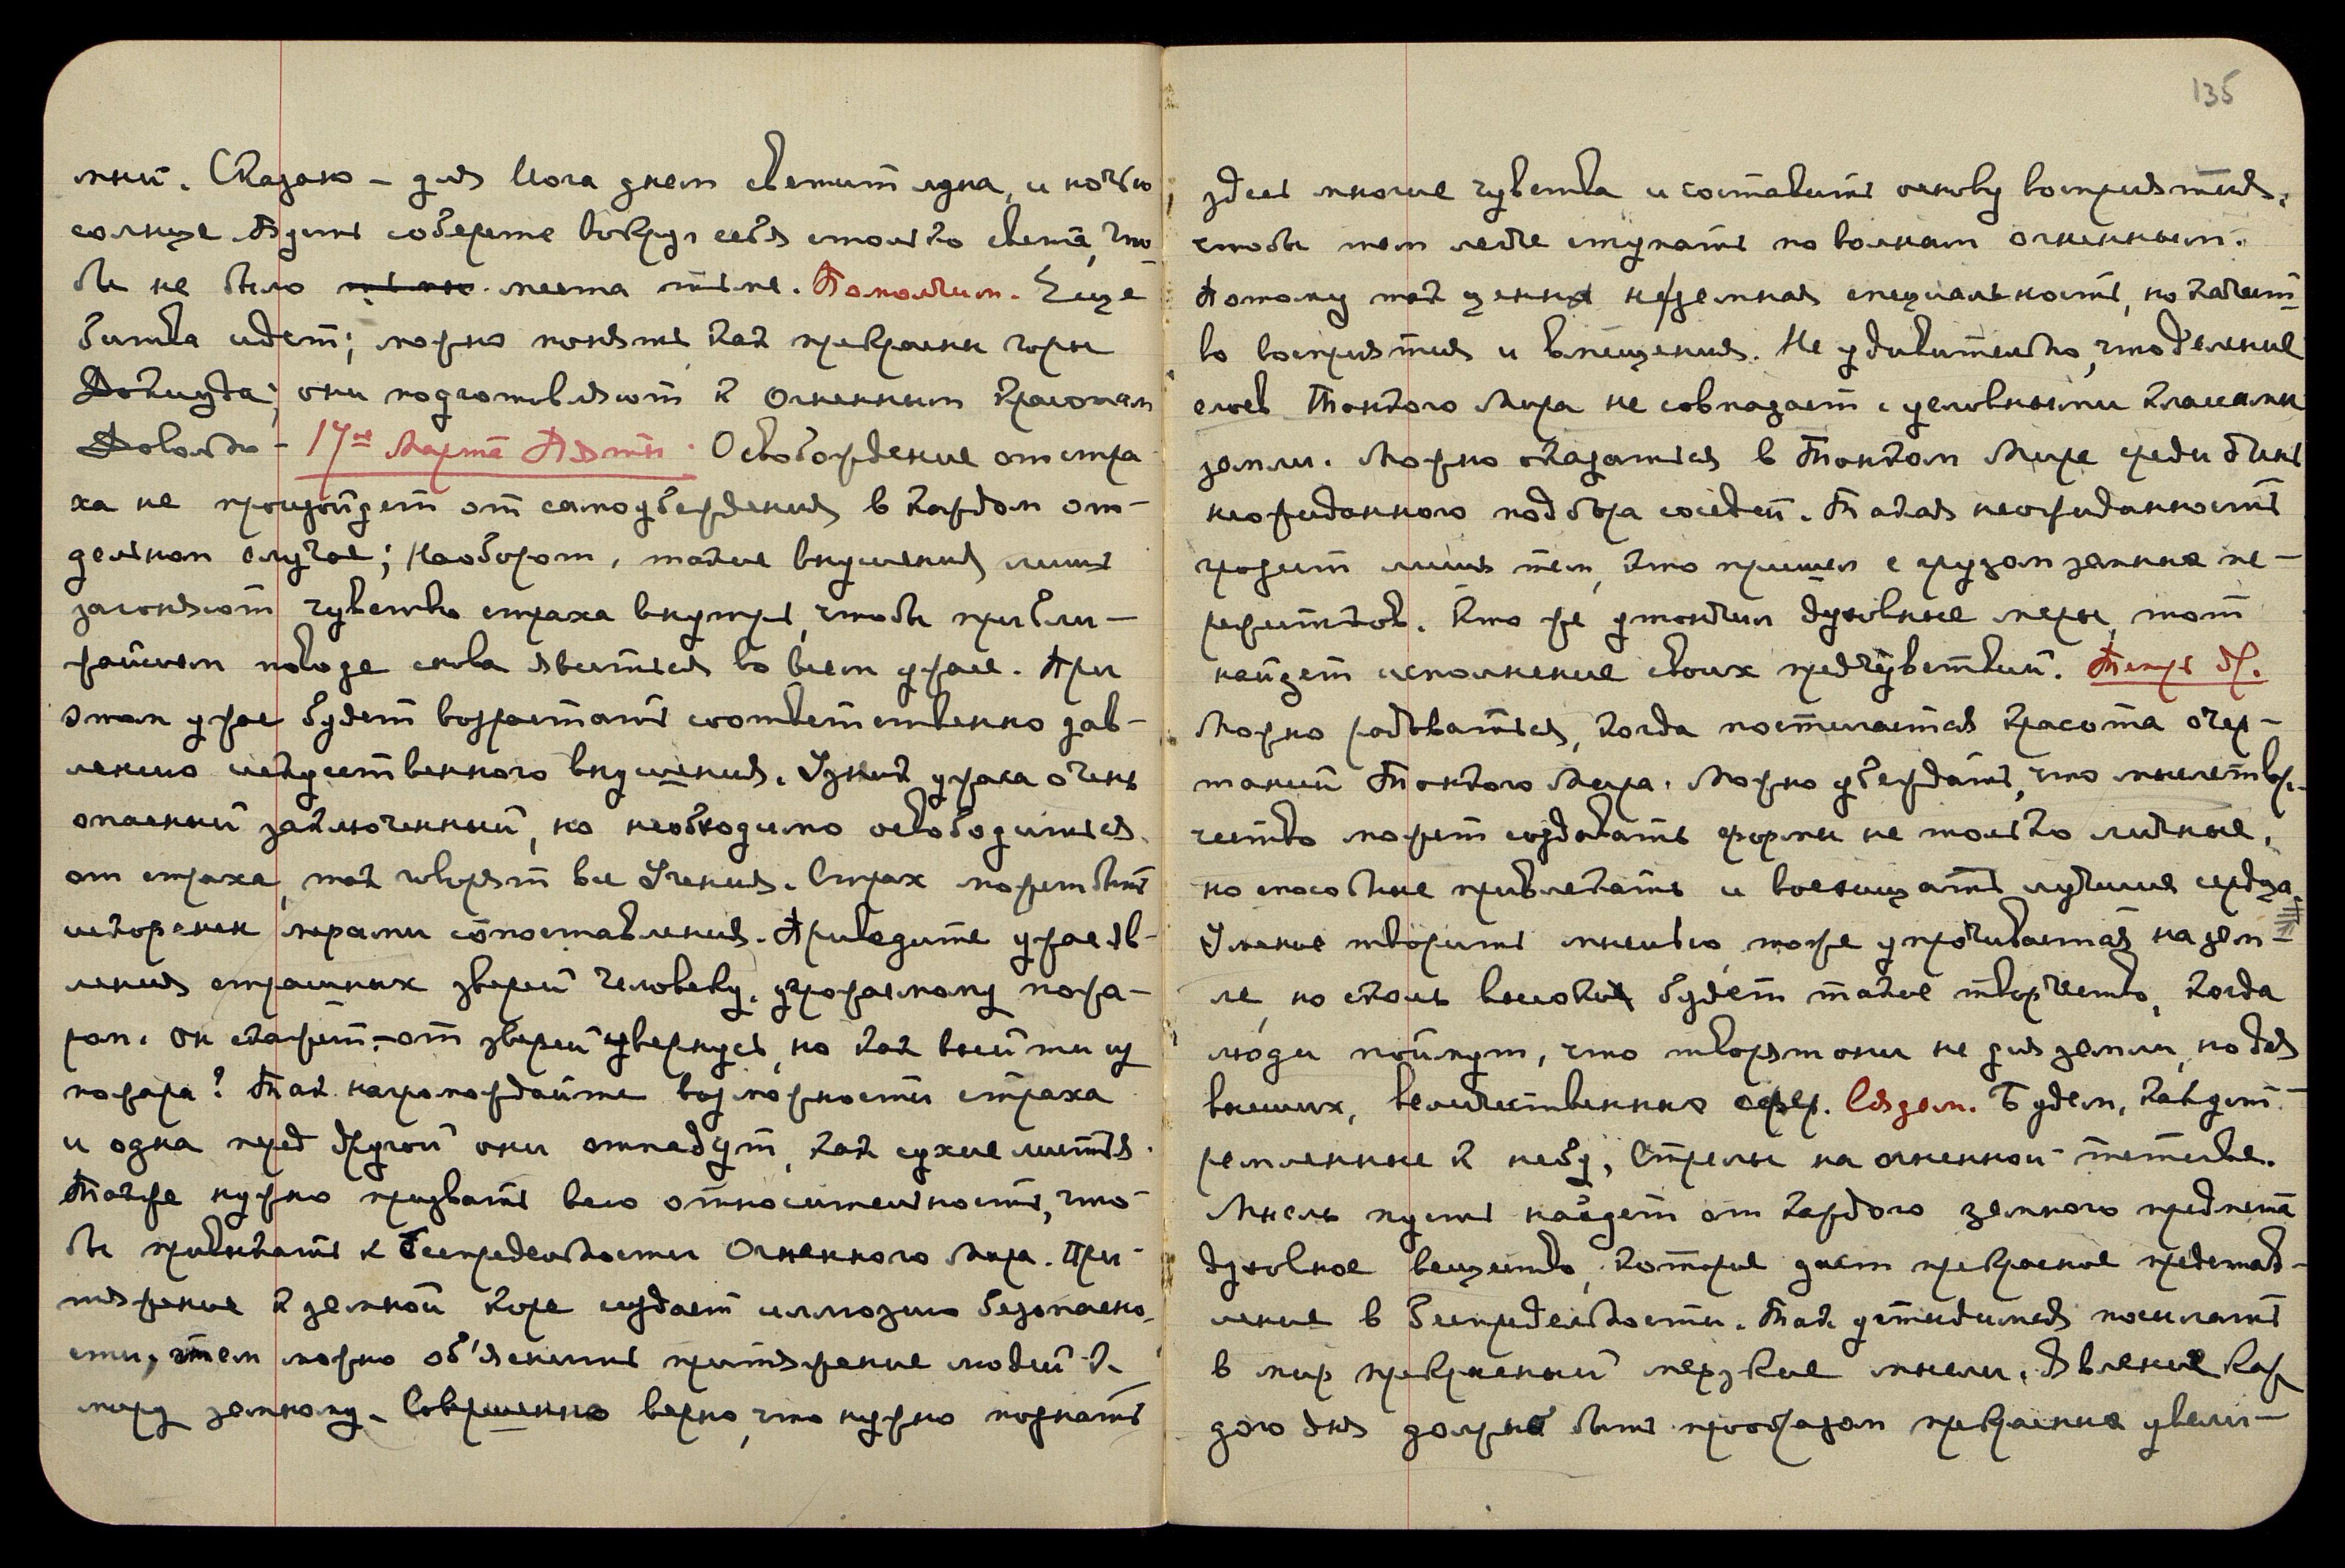 мни. Сказано – для Йога днем светит луна, и ночью
солнце. Пусть соберете вокруг себя столько света, что
бы не было места тьме. Помолчим. Еще
битва идет; можно понять, как прекрасны горы
они подготовляют к Огненным красотам
Довольно – 17ое Марта Освобождение от стра
ха не произойдет от самоубеждения в каждом от-
дельном случае; Наоборот, такие внушения лишь
загоняют чувство страха внутрь, чтобы при бли-
жайшем поводе снова явиться во всем ужасе. При
этом ужас будет возрастать соответственно дав-
лению искусственного внушения. Узник ужаса очень
опасный заключенный, но необходимо освободиться
от страха, так говорят все Учения. Страх может быть
искоренен мерами сопоставления. Приведите ужас яв-
ления страшных зверей человеку, угрожаемому пожа-
ром. Он скажет – от зверей увернусь, но как выйти из
пожара? Так нагромождайте возможности страха
и одна пред другой они отпадут, как сухие листья.
Также нужно призвать всю относительность, что-
бы привыкать к Беспредельности Огненного Мира. При-
тяжение к земной коре создает иллюзию безопасно-
сти, этим можно об'яснить притяжение людей к
миру земному. Совершенно верно, что нужно познать
135
здесь многие чувства и составить основу восприятия,
чтобы тем легче ступать по волнам огненным.
Потому так ценна не земная специальность, но качест-
во восприятия и вмещения. Не удивительно, что деление
слоев Тонкого Мира не совпадает с условными классами
земли. Можно оказаться в Тонком Мире среди очень
неожиданного подбора соседей. Такая неожиданность
грозит лишь тем, кто пришел с грузом земных пе-
режитков. Кто же утончил духовные меры, тот
найдет исполнение своих предчувствий. Теперь др.
Можно радоваться, когда постигается красота очер-
таний Тонкого Мира. Можно убеждать, что мыслетвор-
чество может создавать формы не только личные,
но способные привлекать и восхищать лучшие сердца.
Умение творить мыслью тоже упрочивается на зем-
ле, но сколь высокие будет такое творчество, когда
люди поймут, что творят они не для земли, но для
высших, величественных сфер. Сядем. Будем, как уст-
ремленные к небу, Стрелы на огненной тетиве.
Мысль пусть найдет от каждого земного предмета
духовное вещество, которое дает прекрасное представ-
ление в Беспредельности. Так устыдимся посылать
в мир прекрасный мерзкие мысли. Явление каж
дого дня должно быть прообразом прекрасных увели-